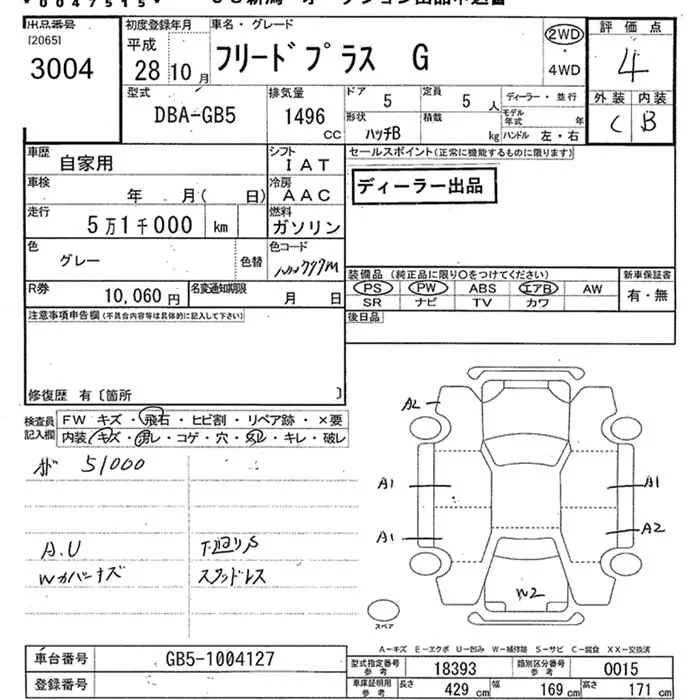 *0047515*
出品番号 [2065] 3004
初度登録年月 平成 28年10月
車名・グレード フリードプラス G
2WD ・ 4WD
評価点 4
外装 C 内装 B
型式 DBA-GB5
排気量 1496 CC
ドア 5 定員 5 人
形状 ハッチB 積載 kg
ディーラー・並行
モデル年式 年
ハンドル 左・右
車歴 自家用
シフト IAT
セールスポイント(正常に機能するものに限ります)
ディーラー出品
車検 年 月( 日)
冷房 AAC
走行 5万1千000 km
燃料 ガソリン
色 グレー 色替
色コード
装備品 (純正品に限り○をつけてください)
PS PW ABS エアB AW
SR ナビ TV カワ
新車保証書 有・無
R券 10,060 円
名変通知期限 月 日
後日品
注意事項申告欄(不具合内容等は具体的に記入して下さい)
修復歴 有〔箇所 〕
検査員記入欄
FW キズ・飛石・ヒビ割・リペア跡・×要
内装 キズ・汚レ・コゲ・穴・凹・キレ・破レ
51000
A.U 下廻りS
Wカバーキズ スタッドレス
A2
A1 A1
A1 A2
W2
スペア
A-キズ E-エクボ U-凹み W-補修跡 S-サビ C-腐食 XX-交換済
車台番号 GB5-1004127
登録番号
型式指定番号 参考 18393 類別区分番号 参考 0015
車庫証明用 参考 長さ 429 cm 幅 169 cm 高さ 171 cm